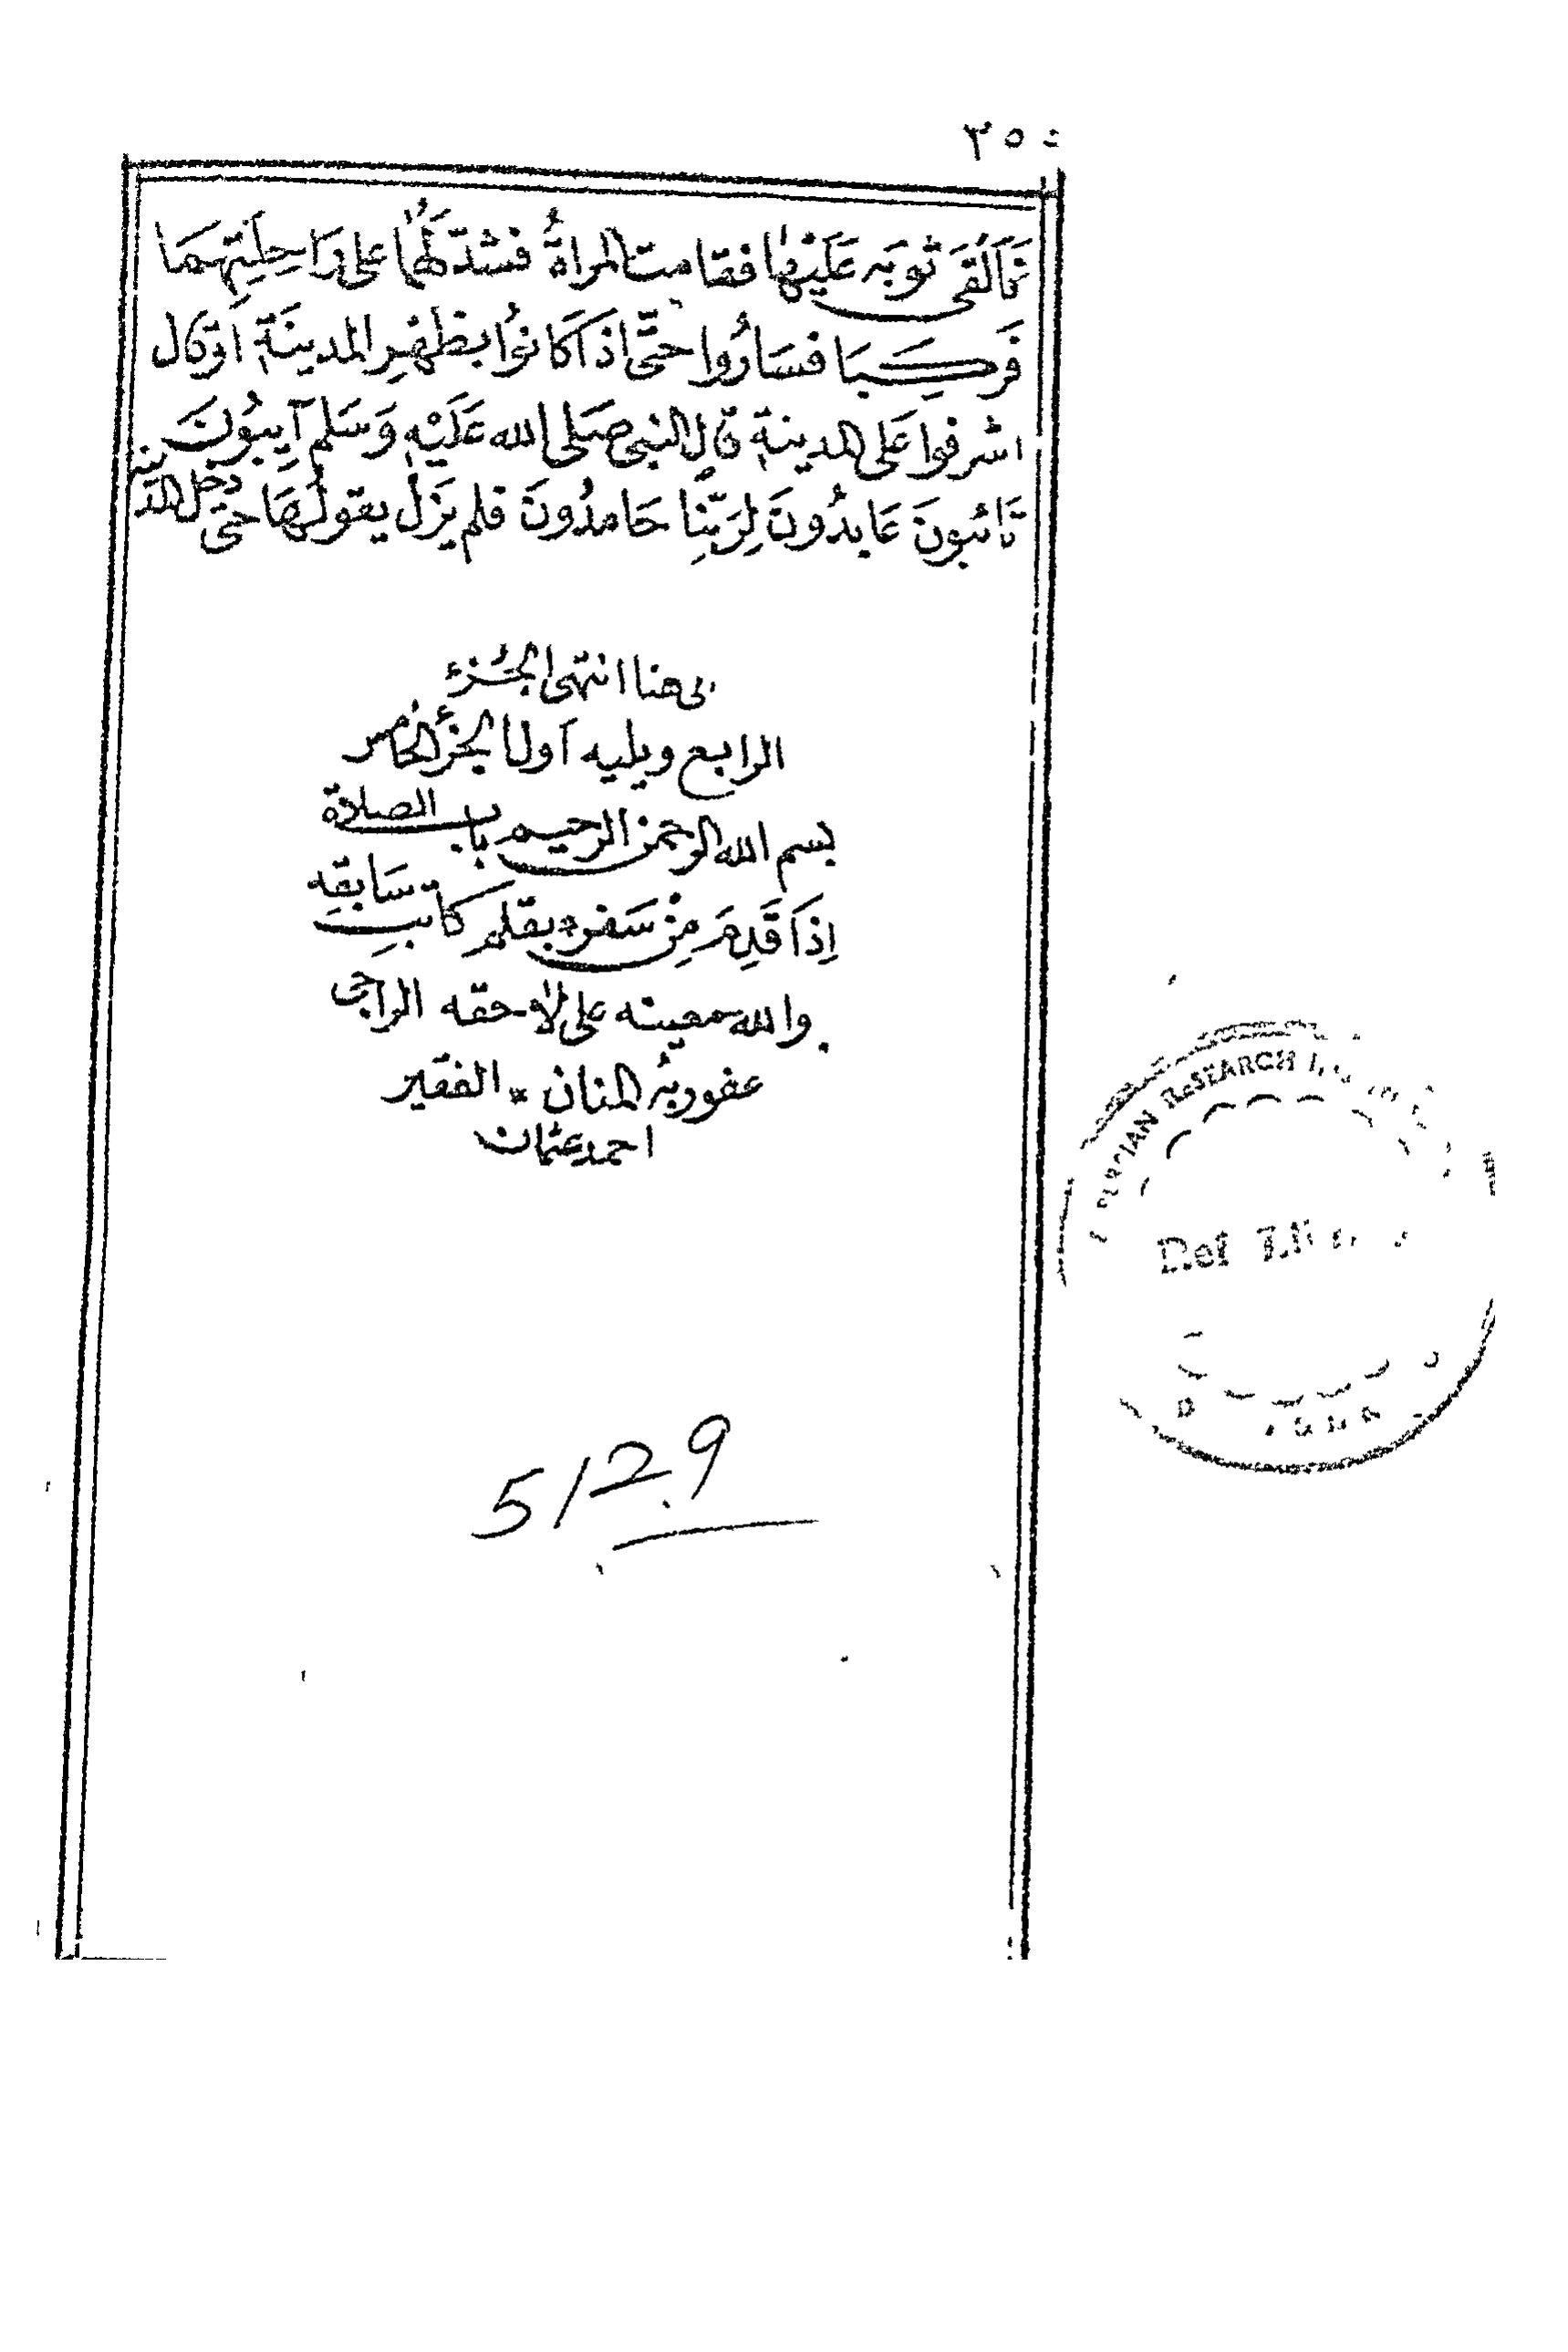 ٣٥٠
فَأَلْقَى ثوبَه عَلَيْهَا فقامت المرأةُ فشدّ لَهُمَا على رَاحِلَتِهِمَا
فَرَكِبَا فسَارُوا حتّى اذَا كَانوُا بظهْرِ المدينَةِ اَوْ قال
اشرفوا عَلى المدينةِ قال النبى صَلى الله عَلَيْهِ وَسَلم آيِبُونَ
تَائبونَ عَابِدُونَ لِرَبِّنَا حَامِدُونَ فلم يَزَلْ يقولُهَا حتى دخل المدينة
الى هنا انتهى الجُزء
الرابع ويليه اَول الجُزء الخامس
بسم الله الرحمن الرحيم باب الصلاة
إِذَا قَدِمَ مِنْ سَفر بقلم كاتبِ سَابقِه
والله معينه على لاحقه الراجى
عفو ربهُ المنان * الفقير
احمد عثمان
5129
PERSIAN RESEARCH